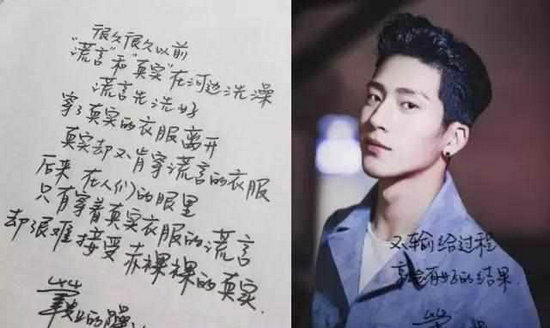 很久很久以前
"谎言"和"真实"在河边洗澡
谎言先洗好
穿了真实的衣服离开
真实却不肯穿谎言的衣服
后来在人们的眼里
只有穿着真实衣服的谎言
却很难接受赤裸裸的真实.
的
不输给过程
就会有好的结果.